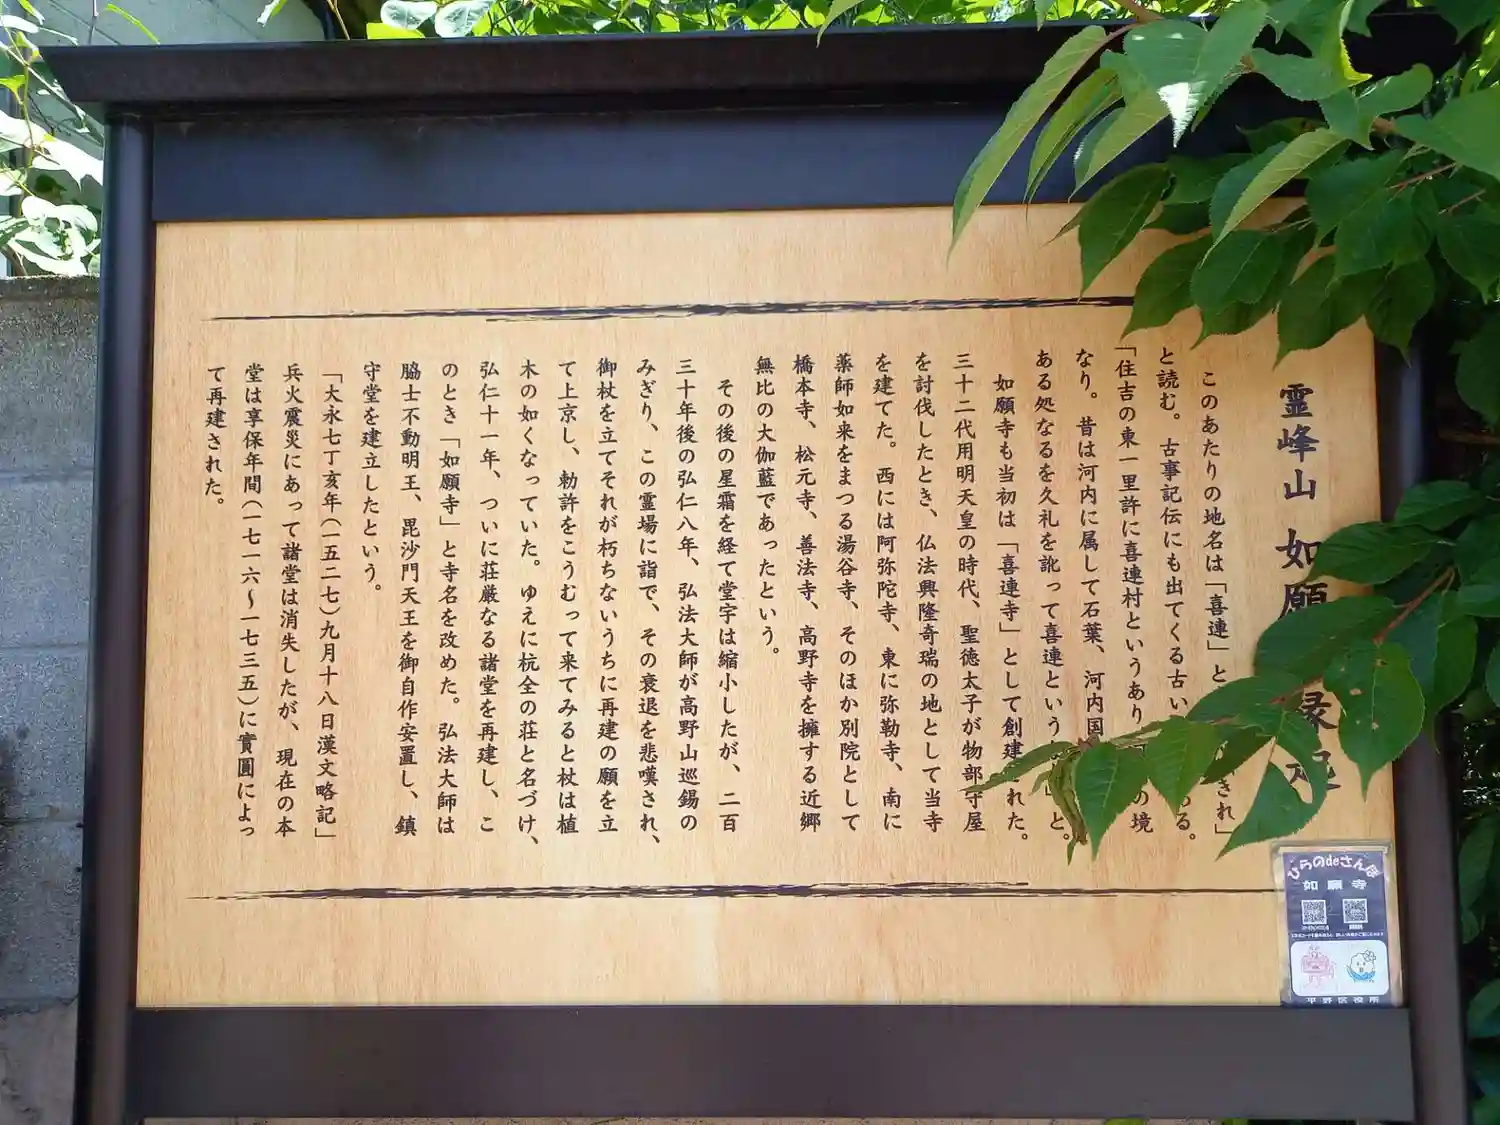 霊峰山 如願 縁起
このあたりの地名は「喜連」と きれ」
と読む。古事記伝にも出てくる古い ある。
「住吉の東一里許に喜連村というあり の境
なり。昔は河内に属して石葉、河内国
ある処なるを久礼を訛って喜連という と。
如願寺も当初は「喜連寺」として創建 れた。
三十二代用明天皇の時代、聖徳太子が物部守屋
を討伐したとき、仏法興隆奇瑞の地として当寺
を建てた。西には阿弥陀寺、東に弥勒寺、南に
薬師如来をまつる湯谷寺、そのほか別院として
橋本寺、松元寺、善法寺、高野寺を擁する近郷
無比の大伽藍であったという。
その後の星霜を経て堂宇は縮小したが、二百
三十年後の弘仁八年、弘法大師が高野山巡錫の
みぎり、この霊場に詣で、その衰退を悲嘆され、
御杖を立てそれが朽ちないうちに再建の願を立
て上京し、勅許をこうむって来てみると杖は植
木の如くなっていた。ゆえに杭全の荘と名づけ、
弘仁十一年、ついに荘厳なる諸堂を再建し、こ
のとき「如願寺」と寺名を改めた。弘法大師は
脇士不動明王、毘沙門天王を御自作安置し、鎮
守堂を建立したという。
「大永七丁亥年(一五二七)九月十八日漢文略記」
兵火震災にあって諸堂は消失したが、現在の本
堂は享保年間(一七一六～一七三五)に實圓によっ
て再建された。
ひらのdeさんぽ
如願寺
平野区役所